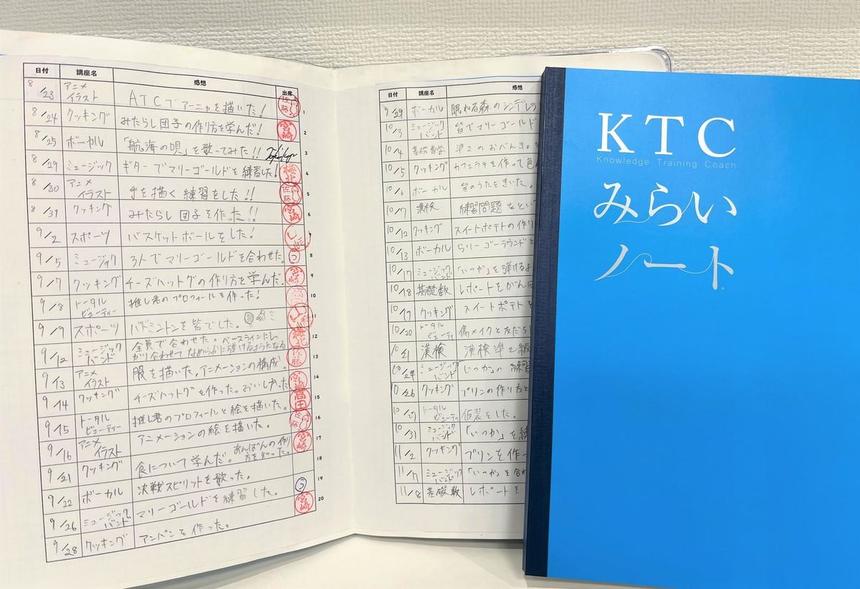 日付 講座名 感想 出席
8/23 アニメイラスト ATCでアーニャを描いた! 1
8/24 クッキング みたらし団子の作り方を学んだ! 2
8/25 ボーカル 「航海の唄」を歌ってみた!!
8/29 ミュージック ギターでマリーゴールドを練習した! 4
8/30 アニメイラスト 手を描く練習をした!! 5
8/31 クッキング みたらし団子を作った!! 6
9/2 スポーツ バスケットボールをした! 7
9/5 ミュージック 3人でマリーゴールドを合わせた。 8
9/7 クッキング チーズハットグの作り方を学んだ。 9
9/8 トータルビューティー 推し君のプロフィールを作った! 10
9/9 スポーツ バドミントンを皆でした。 11
9/12 ミュージックバンド 全員で合わせた。ベースラインにしっかり合わせて 12
9/13 アニメイラスト 服を描いた。アニメーションの構成。 13
9/14 クッキング チーズハットグを作った。おいしかった 14
9/15 トータルビューティー 推し君のプロフィールと絵を描いた。 15
9/16 アニメイラスト アニメーションの絵を描いた。 16
9/21 クッキング 食について学んだ。あんぱんの作り方を 17
9/22 ボーカル 決戦スピリットを歌った。
9/26 ミュージックバンド マリーゴールドを練習した。 19
9/28 クッキング アンパンを作った。 20
日付 講座名
9/29 ボーカル 眠れる森のシンデレ
10/3 ミュージックバンド 皆でマリーゴールド
10/4
10/5 クッキング
10/6 ボーカル 皆のうたをきいた。
10/7 漢検 練習問題をとい
10/12 クッキング スイートポテトの作り
10/13 ボーカル
10/17 ミュージックバンド 「いつか」を弾けるよ
10/18 基礎数 レポートをがん
10/19 クッキング スイートポテトを
10/20 トータルビューティー 傷メイクと友だち
10/21 漢検 漢検準2級
10/24 ミュージックバンド 「いつか」の練習
10/26 クッキング プリンの作り方と
10/27 トータルビューティー 仮装をした。
10/31 ミュージックバンド 「いつか」を練
11/2 クッキング プリンを作
11/7 ミュージックバンド 「いつか」を合わ
11/8 基礎数 レポートを
KTC
Knowledge Training Coach
みらい
ノート